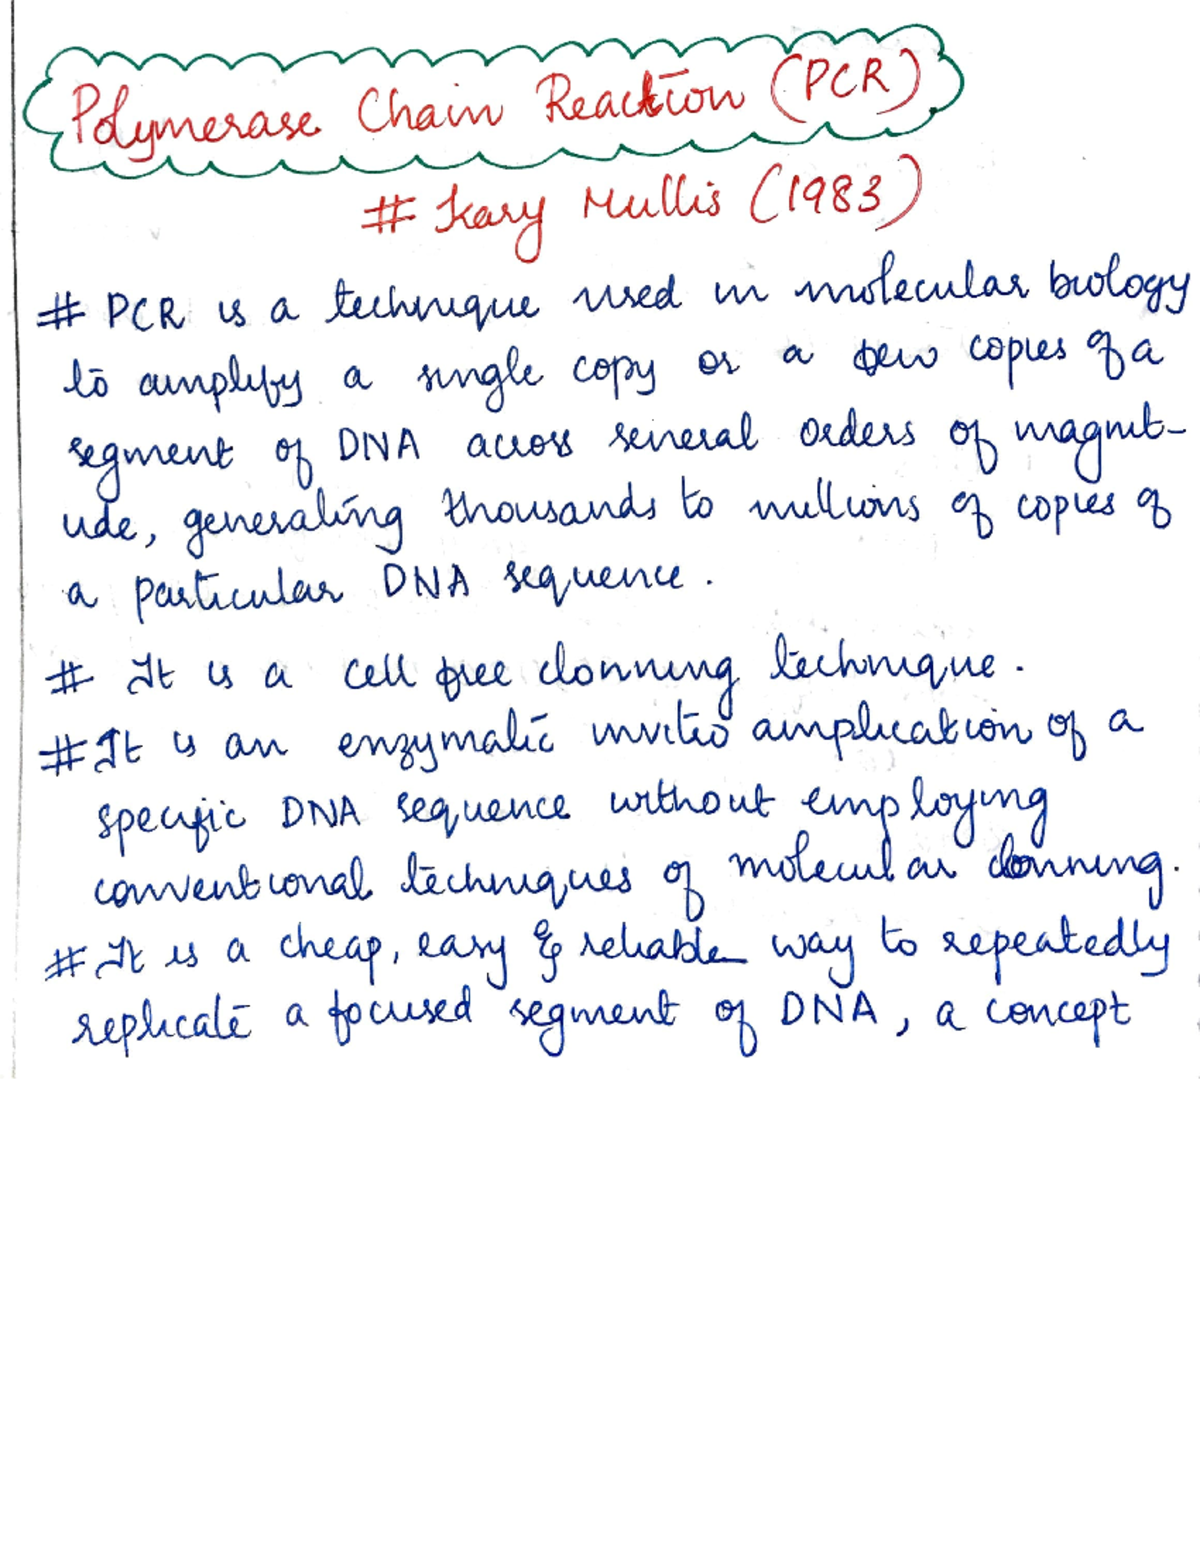 Polymerase Chain Reaction (PCR)
# Kary Mullis (1983)
# PCR is a technique used in molecular biology
to amplify a single copy or a few copies of a
segment of DNA across several orders of magnit-
ude, generating thousands to millions of copies of
a particular DNA sequence.
# It is a cell free clonning technique.
# It is an enzymatic invitro amplication of a
specific DNA sequence without employing
conventional techniques of molecular clonning.
# It is a cheap, easy & reliable way to repeatedly
replicate a focused segment of DNA, a concept